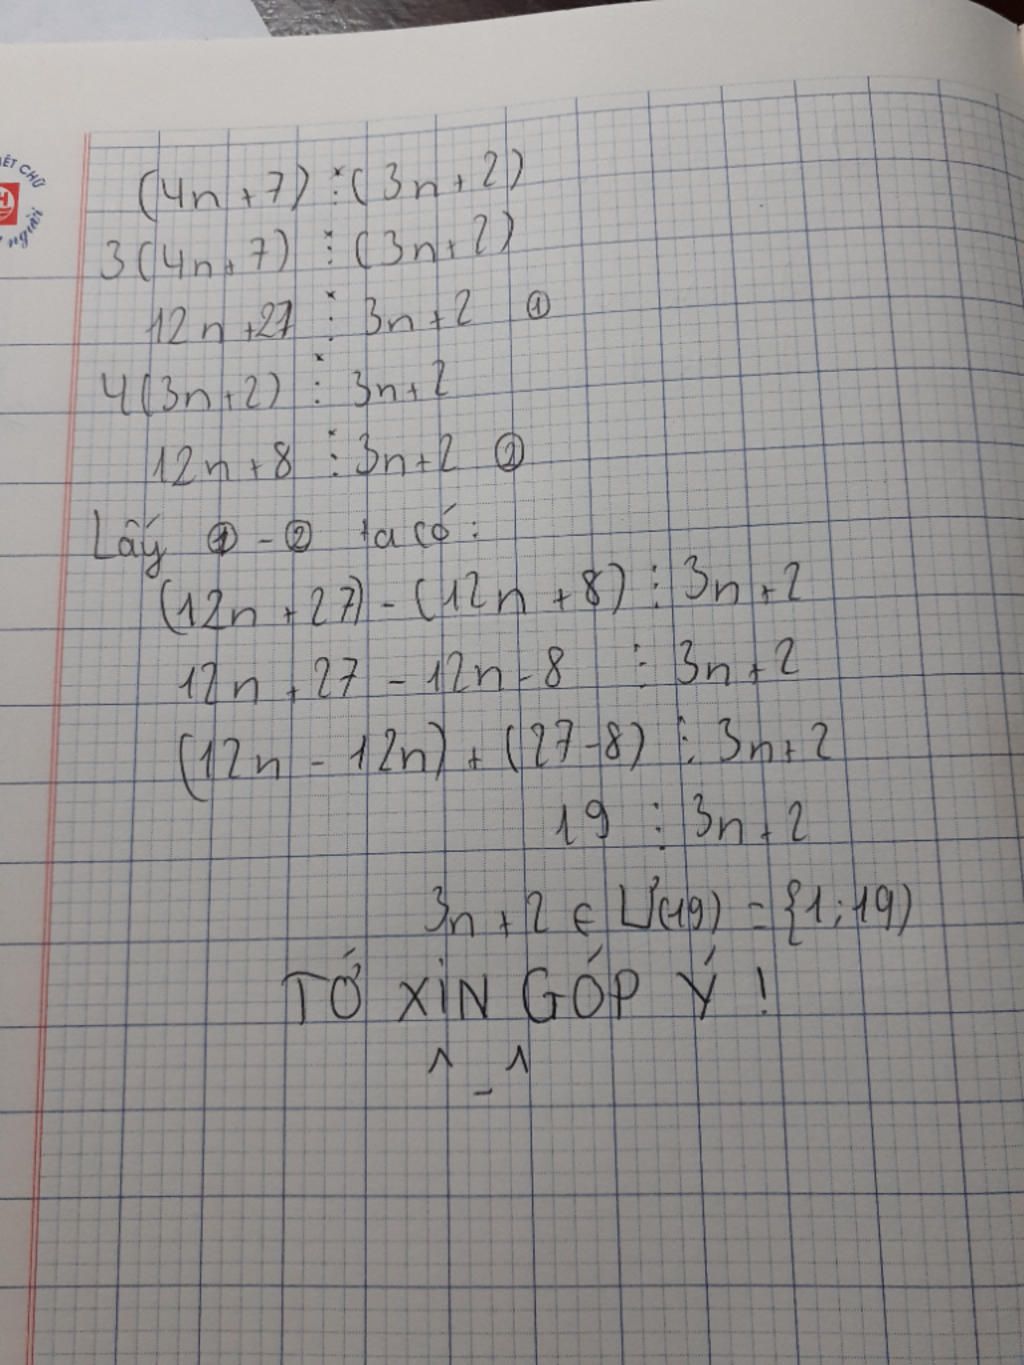 (4n+7) ⋮ (3n+2)
3(4n+7) ⋮ (3n+2)
12n+27 ⋮ 3n+2 ①
4(3n+2) ⋮ 3n+2
12n+8 ⋮ 3n+2 ②
Lấy ① - ② ta có:
(12n+27) - (12n+8) ⋮ 3n+2
12n+27 - 12n-8 ⋮ 3n+2
(12n - 12n) + (27-8) ⋮ 3n+2
19 ⋮ 3n+2
3n+2 ∈ Ư(19) = {1;19)
TỚ XIN GÓP Ý !
^_^
ẾT CHỮ
H
người